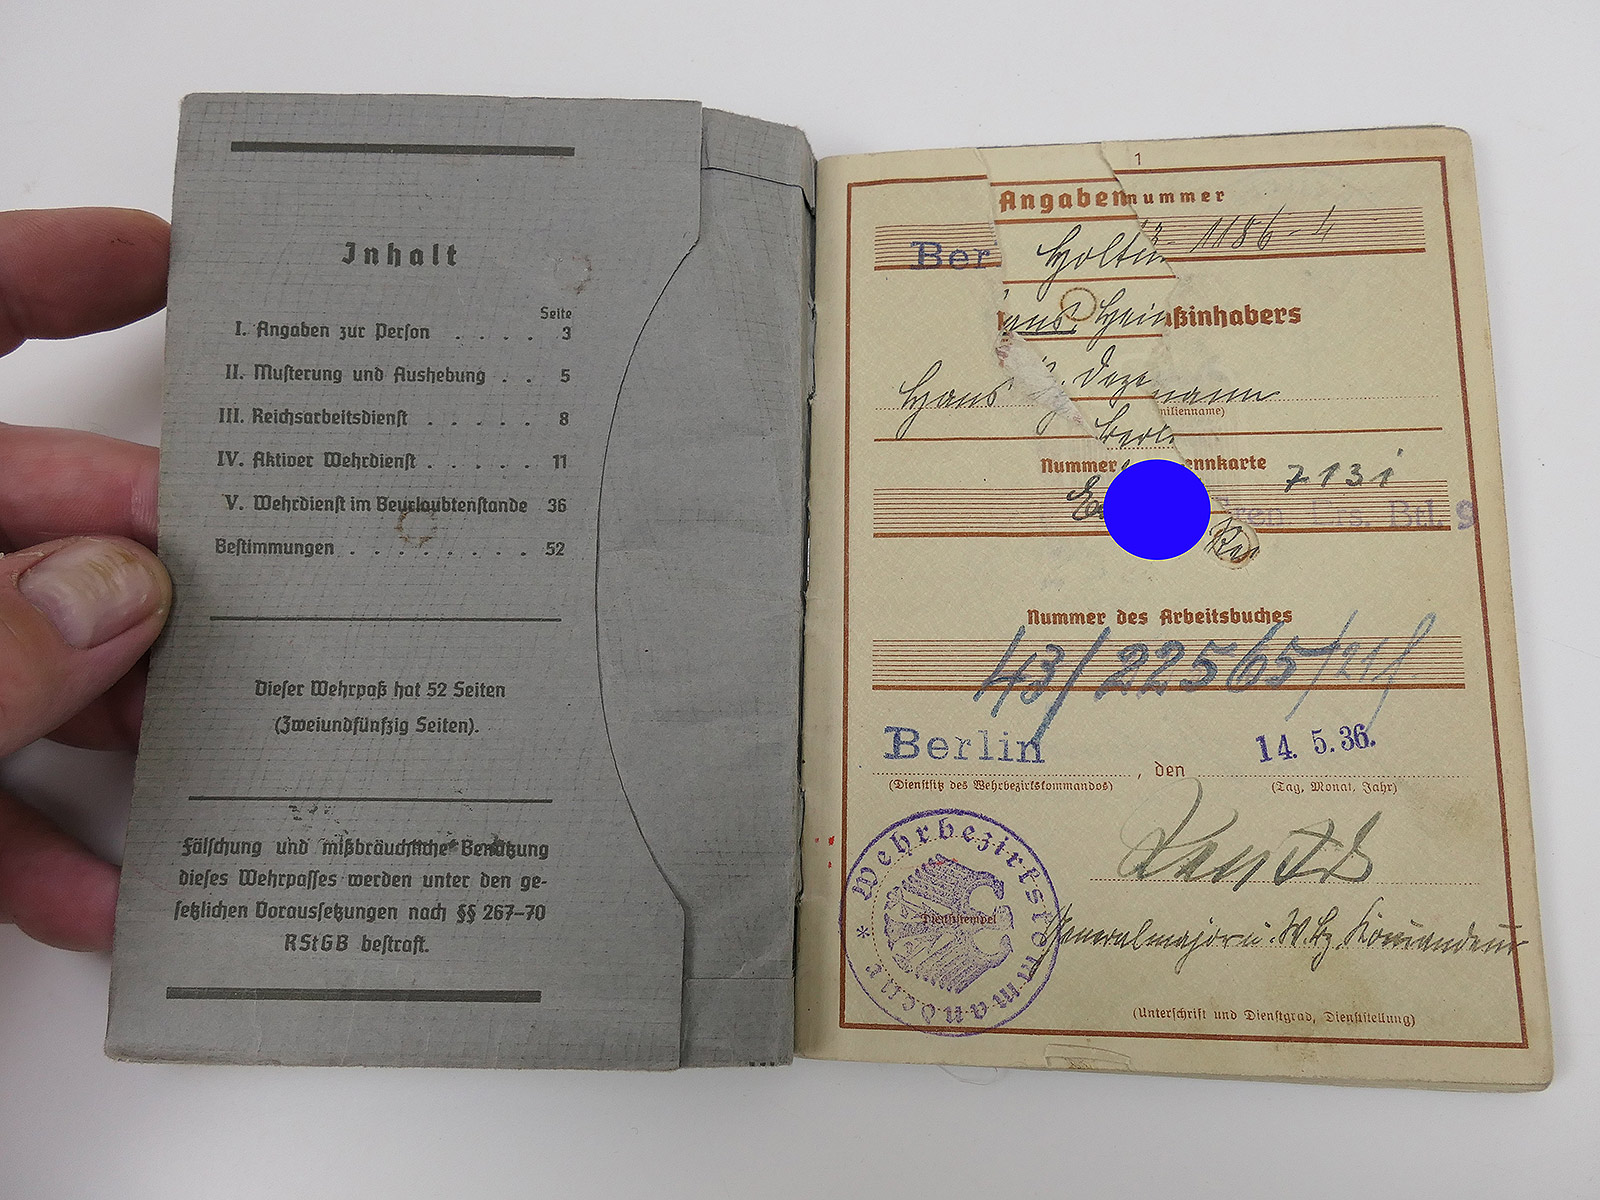 Inhalt
Seite
I. Angaben zur Person . . . . 3
II. Musterung und Aushebung . . 5
III. Reichsarbeitsdienst . . . . . 8
IV. Aktiver Wehrdienst . . . . . 11
V. Wehrdienst im Beurlaubtenstande 36
Bestimmungen . . . . . . . . 52
Dieser Wehrpaß hat 52 Seiten
(Zweiundfünfzig Seiten).
Fälschung und mißbräuchliche Benutzung
dieses Wehrpasses werden unter den ge-
setzlichen Voraussetzungen nach §§ 267–70
RStGB bestraft.
1
Angaben nummer
Ber 1186-4
ans, ßinhabers
Hans mann
milienname)
Nummer ennkarte
7131
Btl. 9
Nummer des Arbeitsbuches
43/22565/
Berlin , den 14. 5. 36.
(Dienstsitz des Wehrbezirkskommandos) (Tag, Monat, Jahr)
* Wehrbezirkskommandeur
Dienststempel
Generalmajor u. W. Bz. Kommandeur
(Unterschrift und Dienstgrad, Dienststellung)